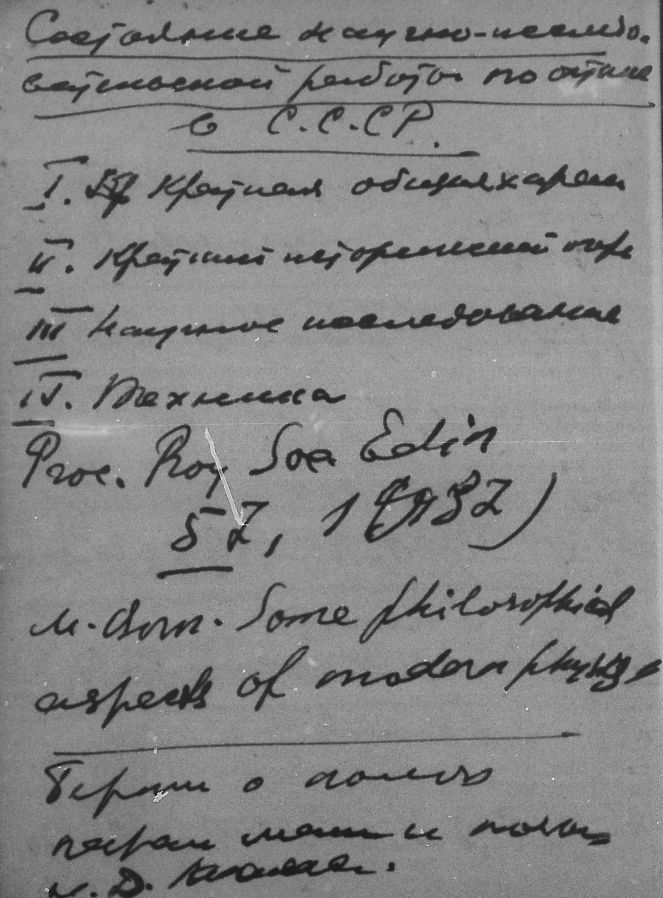 Состояние научно-исследо-
вательской работы по оптике
в С.С.СР.
I. Краткая общая характ
II. Краткий исторический очерк
III Научное исследование
IV. Техника
Proc. Roy Soc Edin
57, 1 (1937)
M. Born. Some philosophical
aspects of modern physics
о
и